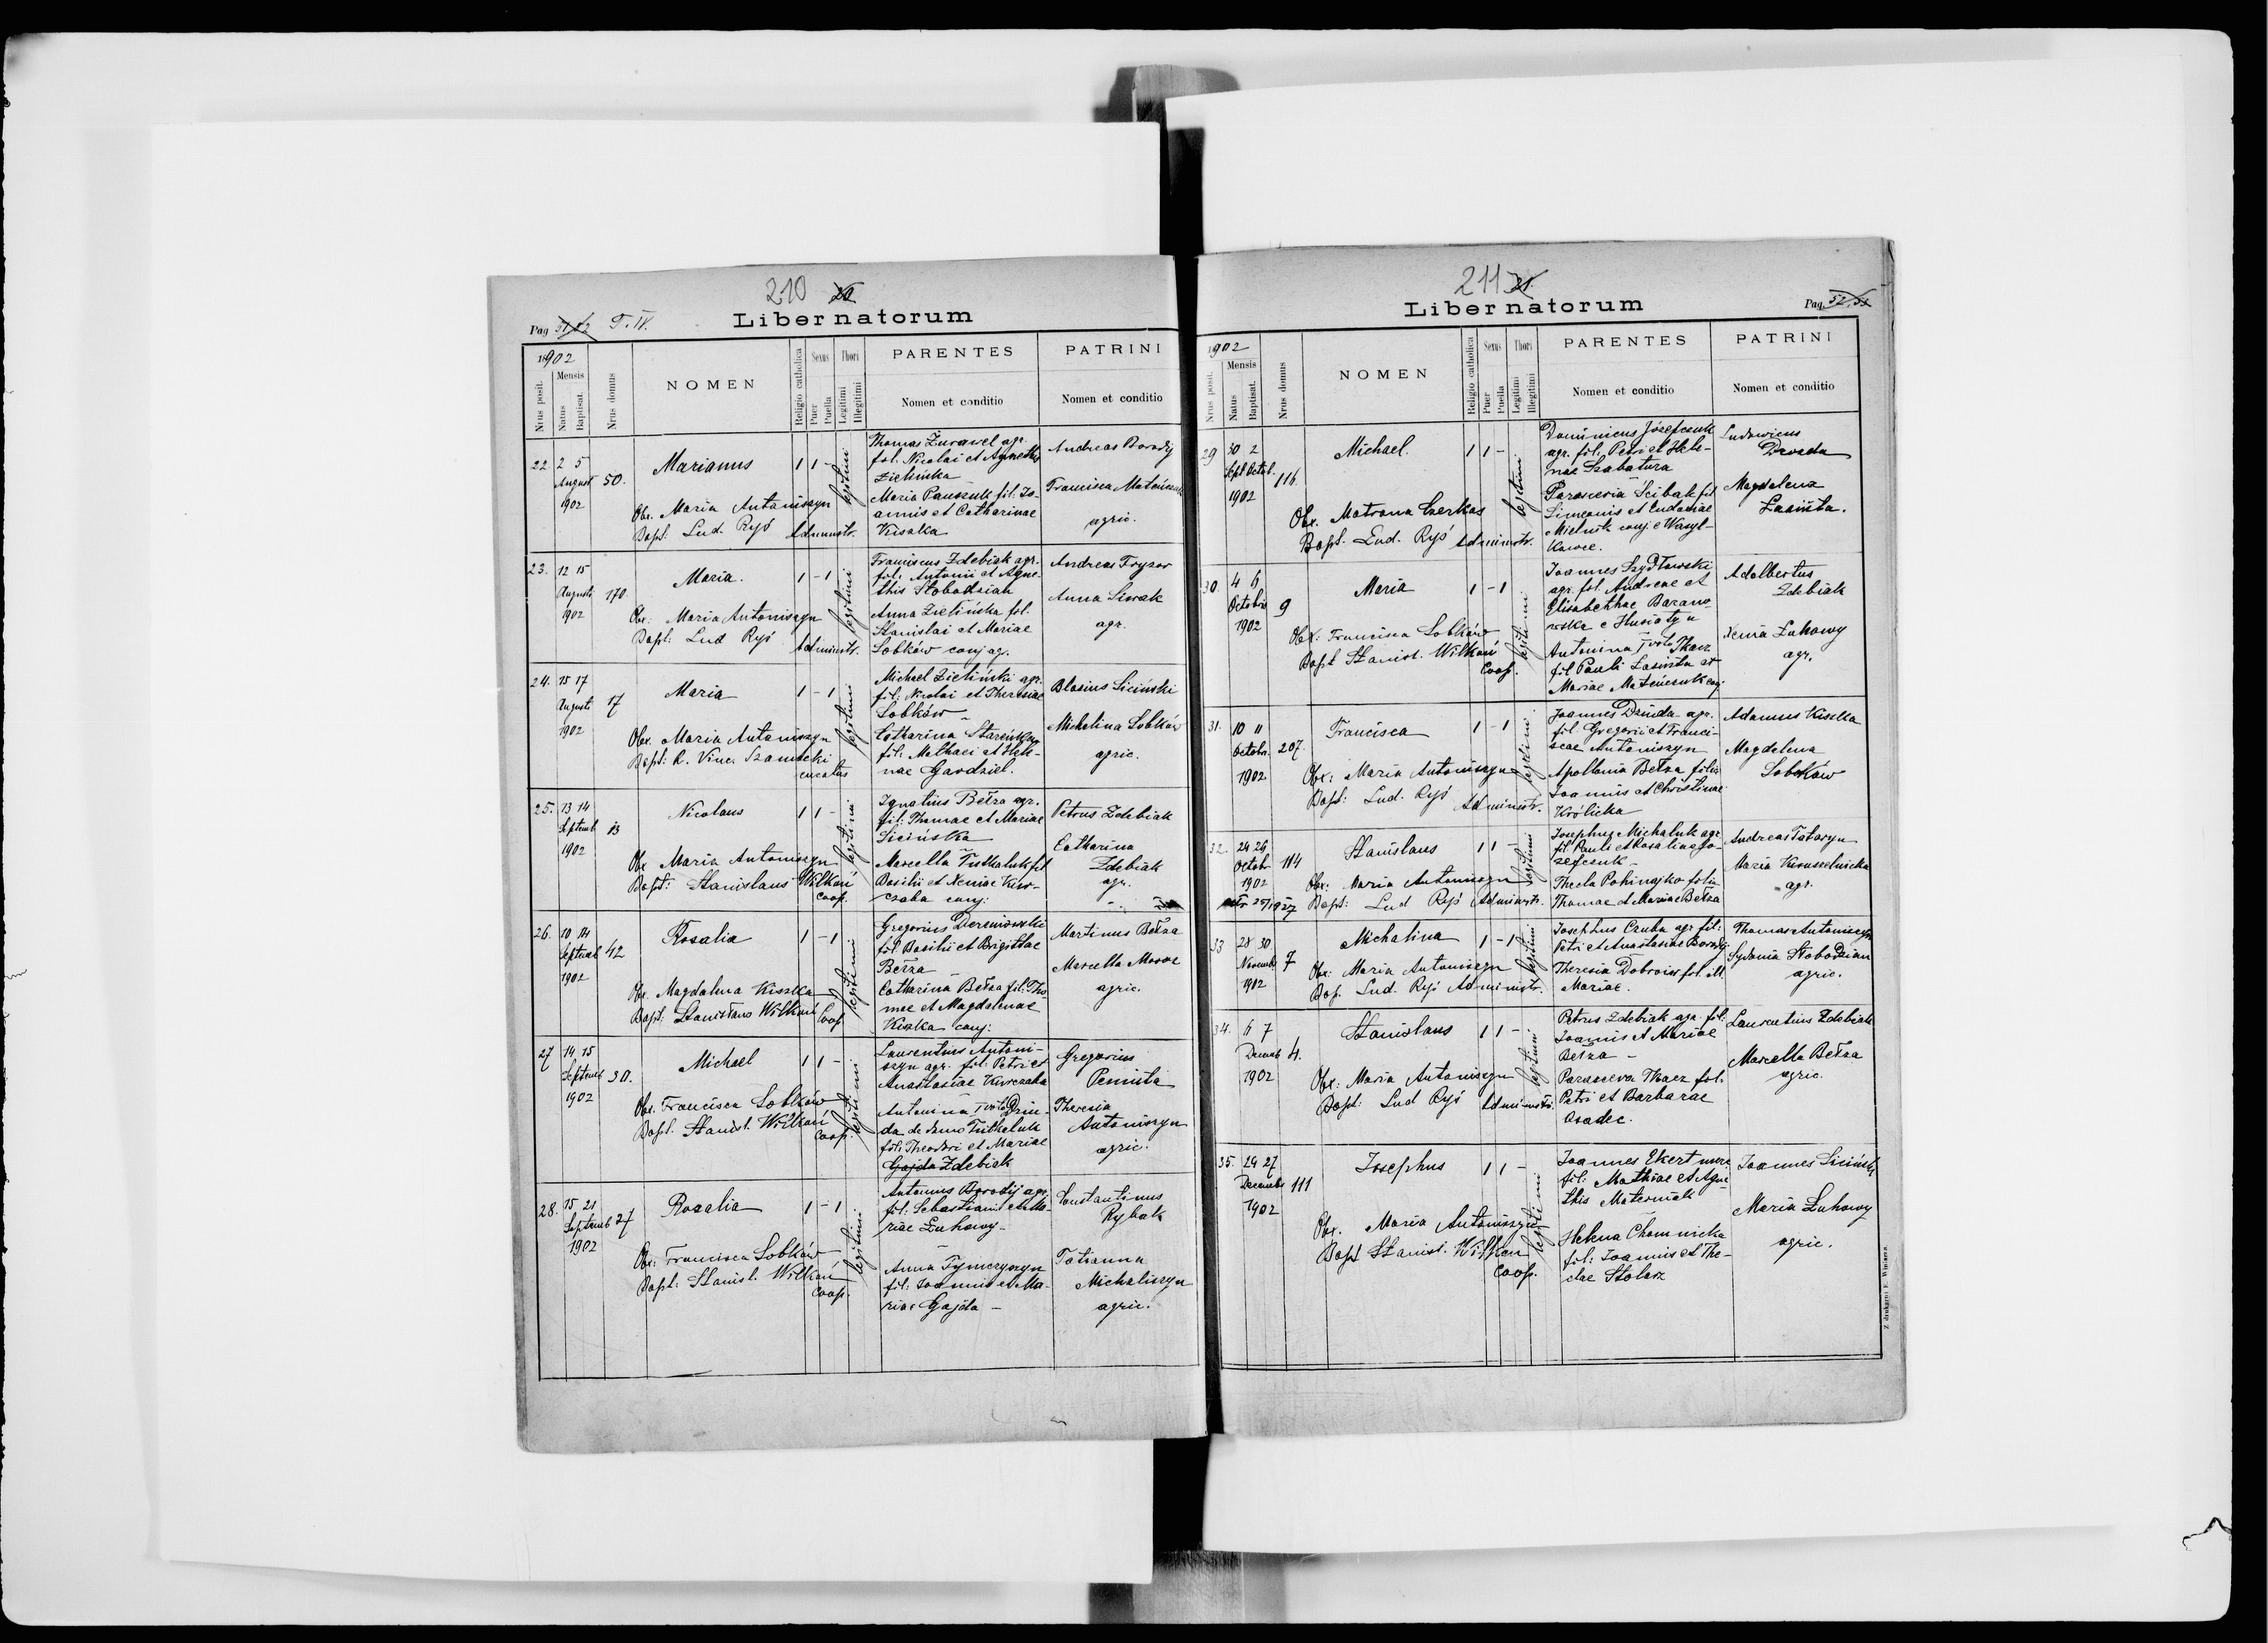 210
Pag. T. IV.
Liber natorum
1902
Nrus posit.
Mensis
Natus
Baptisat.
Nrus domus
NOMEN
Religio catholica
Sexus
Puer
Puella
Thori
Legitimi
Illegitimi
PARENTES
Nomen et conditio
PATRINI
Nomen et conditio
22. 2 5
August
1902
50.
Marianus
1 1 -
legitimi
Obx. Maria Antoniszyn
Bapt: Lud. Ryś Administr.
Thomas Żurawel agr.
fil. Nicolai et Agnethis
Zielińska
Maria Panszuk fil: Jo-
annis et Catharinae
Kiszka
Andreas Borodij
Francisca
agric.
23. 12 15
Augusti
1902
170
Maria.
1 - 1
legitimi
Obx: Maria Antoniszyn
Bapt: Lud Ryś Administr.
Franciscus Zdebiak agr.
fil: Antonii et Agne-
this Słobodzian
Anna Zielińska fil.
Stanislai et Mariae
Sobków conj agr.
Andreas Fryzor
Anna Siwak
agr.
24. 15 17
Augusti
1902
17
Maria
1 - 1
legitimi
Obx. Maria Antoniszyn
Bapt: R. Vinc. Szamecki
curatus
Michael Zieliński agr.
fil: Nicolai et Theresiae
Sobków
Catharina
fil: Mathaei et Hele-
nae Gardziel.
Blasius Siciński
Michalina Sobków
agric.
25. 13 14
Septemb
1902
13
Nicolaus
1 1 -
legitimi
Obx Maria Antoniszyn
Bapt: Stanislaus Wilkoń
Coop.
Ignatius Bełza agr.
fil: Thomae et Mariae
Sicińska
Marcella Tutkaluk fil
Basilii et Xeniae Kur-
czaba conj:
Petrus Zdebiak
Catharina
Zdebiak
agr.
26. 10 14
Septemb
1902
42
Rosalia
1 - 1
legitimi
Obx. Magdalena Kiszka
Bapt: Stanisłaus Wilkoń
Coop.
Gregorius Dereniowski
fil Basilii et Brigittae
Bełza
Catharina Bełza fil: Tho-
mae et Magdalenae
Kiszka conj:
Martinus Bełza
Marcella Moroz
agric.
27 14 15
Septemb
1902
30.
Michael
1 1 -
legitimi
Obx. Francisca Sobków
Bapt. Stanisl. Wilkoń
Coop.
Laurentius Antoni-
szyn agr. fil. Petri et
Anastasiae Kurczaba
Antonina I voto Dziu-
da de domo Tutkaluk
fil: Theodori et Mariae
Gajda Zdebiak
Gregorius
Theresia
Antoniszyn
agric.
28. 15 21
Septemb
1902
27
Rozalia
1 - 1
legitimi
Obx: Francisca Sobków
Bapt: Stanisl. Wilkoń
Coop.
Antonius Borodij agr.
fil: Sebastiani et Ma-
riae Łuhowy -
Anna Tymczyszyn
fil: Joannis et Ma-
riae Gajda -
Constantinus
Rybak
Tatianna
Michaliszyn
agric.
211
Liber natorum
Pag.
1902
Nrus posit.
Mensis
Natus
Baptisat.
Nrus domus
NOMEN
Religio catholica
Sexus
Puer
Puella
Thori
Legitimi
Illegitimi
PARENTES
Nomen et conditio
PATRINI
Nomen et conditio
29 30 2
Sept Octob.
1902
116
Michael.
1 1 -
legitimi
Obx. Matrona Czerkas
Bapt. Lud. Ryś Administr.
Dominicus Józefczuk
agr. fil. Petri et Hele-
nae Szabatura
Parascevia Ścibak fil
Simeonis et Eudociae
Mielnik conj. e Wasyl-
kowce.
Ludovicus
Drozda
Magdalena
Łasińta.
30. 4 6
Octobris
1902
9
Maria
1 - 1
legitimi
Obx: Francisca Sobków
Bapt Stanisl. Wilkoń
Coop.
Joannes Szydłowski
agr. fil. Andreae et
Elisabethae Barano-
wska e Husiatyn
Antonina I voto Tkacz
fil Pauli Łasińta et
Mariae conj.
Adalbertus
Zdebiak
Xenia Łuhowy
agr.
31. 10 11
Octobr.
1902
207.
Francisca
1 - 1
legitimi
Obx: Maria Antoniszyn
Bapt: Lud. Ryś Administr.
Joannes Dziuda agr.
fil. Gregorii et Franci-
scae Antoniszyn
Apollonia Bełza filia
Joannis et Christinae
Królicka
Adamus Kiszka
Magdalena
Sobków
32. 24 26
Octobr
1902
114
Stanislaus
1 1 -
legitimi
Obx: Maria Antoniszyn
Bapt: Lud Ryś Administr.
Josephus Michaluk agr
fil Pauli et Rosaliae Jo-
zefczuk -
Thecla Pohinajko filia
Thomae et Mariae Bełza
Andreas Tataryn
Maria
agr.
33 28 30
Novemb
1902
7
Michalina
1 - 1
legitimi
Obx: Maria Antoniszyn
Bap. Lud. Ryś Administr.
Josephus Czuba agr fil:
Petri et Anastasiae Borodij
Theresia fil. M
Mariae.
Thomas Antoniszyn
Sydonia Słobodzian
agric.
34. 6 7
Decemb
1902
4.
Stanislaus
1 1 -
legitimi
Obx: Maria Antoniszyn
Bapt: Lud Ryś Administr.
Petrus Zdebiak agr. fil:
Joannis et Mariae
Bełza -
Parasceva Tkacz fil.
Petri et Barbarae
Osadec.
Laurentius Zdebiak
Marcella Bełza
agric.
35. 24 27
Decemb
1902
111
Josephus
1 1 -
legitimi
Obx. Maria Antoniszyn
Bapt Stanisl. Wilkoń
Coop.
Joannes Ekert
fil: Mathiae et Agne-
this Materniak
Helena Chomnicka
fil: Joannis et The-
clae Stolarz
Joannes Siciński
Maria Łuhowy
agric.
Z drukarni E. Winiarza.